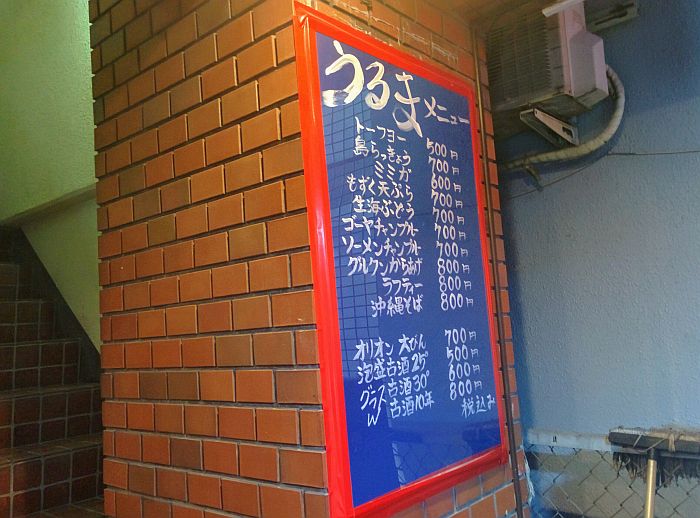 うるまメニュー
トーフヨー 500円
島らっきょう 700円
ミミガ 600円
もずく天ぷら 700円
生海ぶどう 700円
ゴーヤチャンプルー 700円
ソーメンチャンプルー 700円
グルクンからあげ 800円
ラフティー 800円
沖縄そば 800円
オリオン 大びん 700円
泡盛古酒25° 500円
グラス 古酒30° 600円
W 古酒10年 800円
税込み